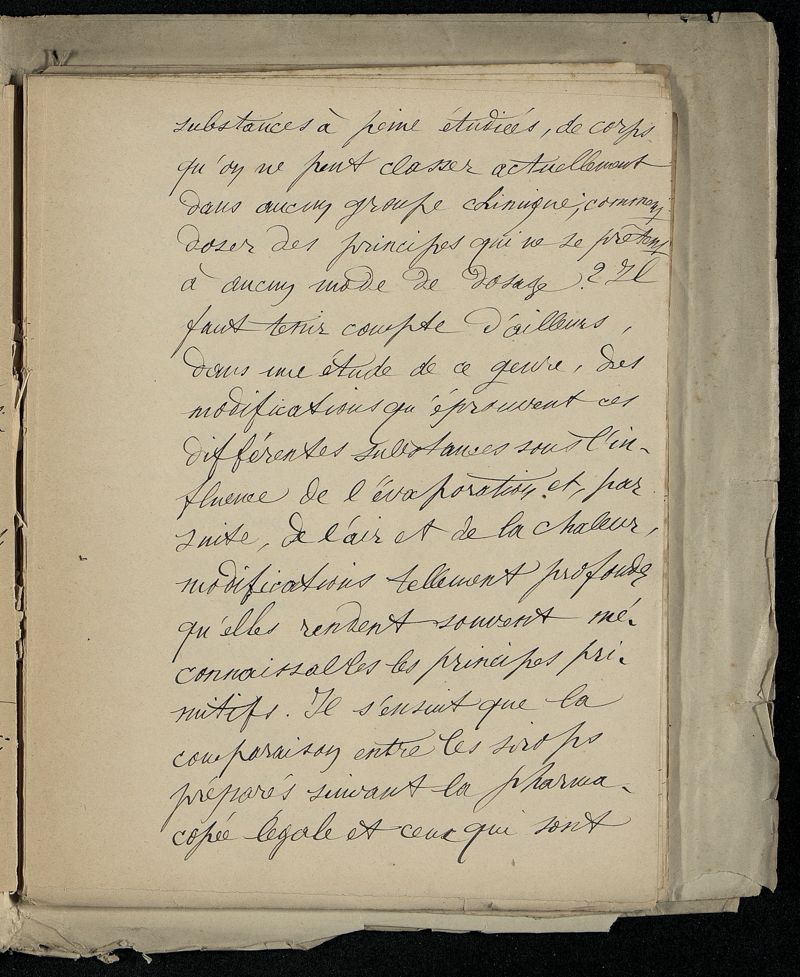 substances à peine étudiées, de corps
qu'on ne peut classer actuellement
dans aucun groupe chimique; comment
doser des principes qui ne se prêtent
à aucun mode de dosage ? Il
faut tenir compte d'ailleurs,
dans une étude de ce genre, des
modifications qu'éprouvent ces
différentes substances sous l'in-
fluence de l'évaporation et, par
suite, de l'air et de la chaleur,
modifications tellement profondes
qu'elles rendent souvent mé-
connaissables les principes pri-
mitifs. Il s'ensuit que la
comparaison entre les sirops
préparés suivant la pharma-
copée légale et ceux qui sont